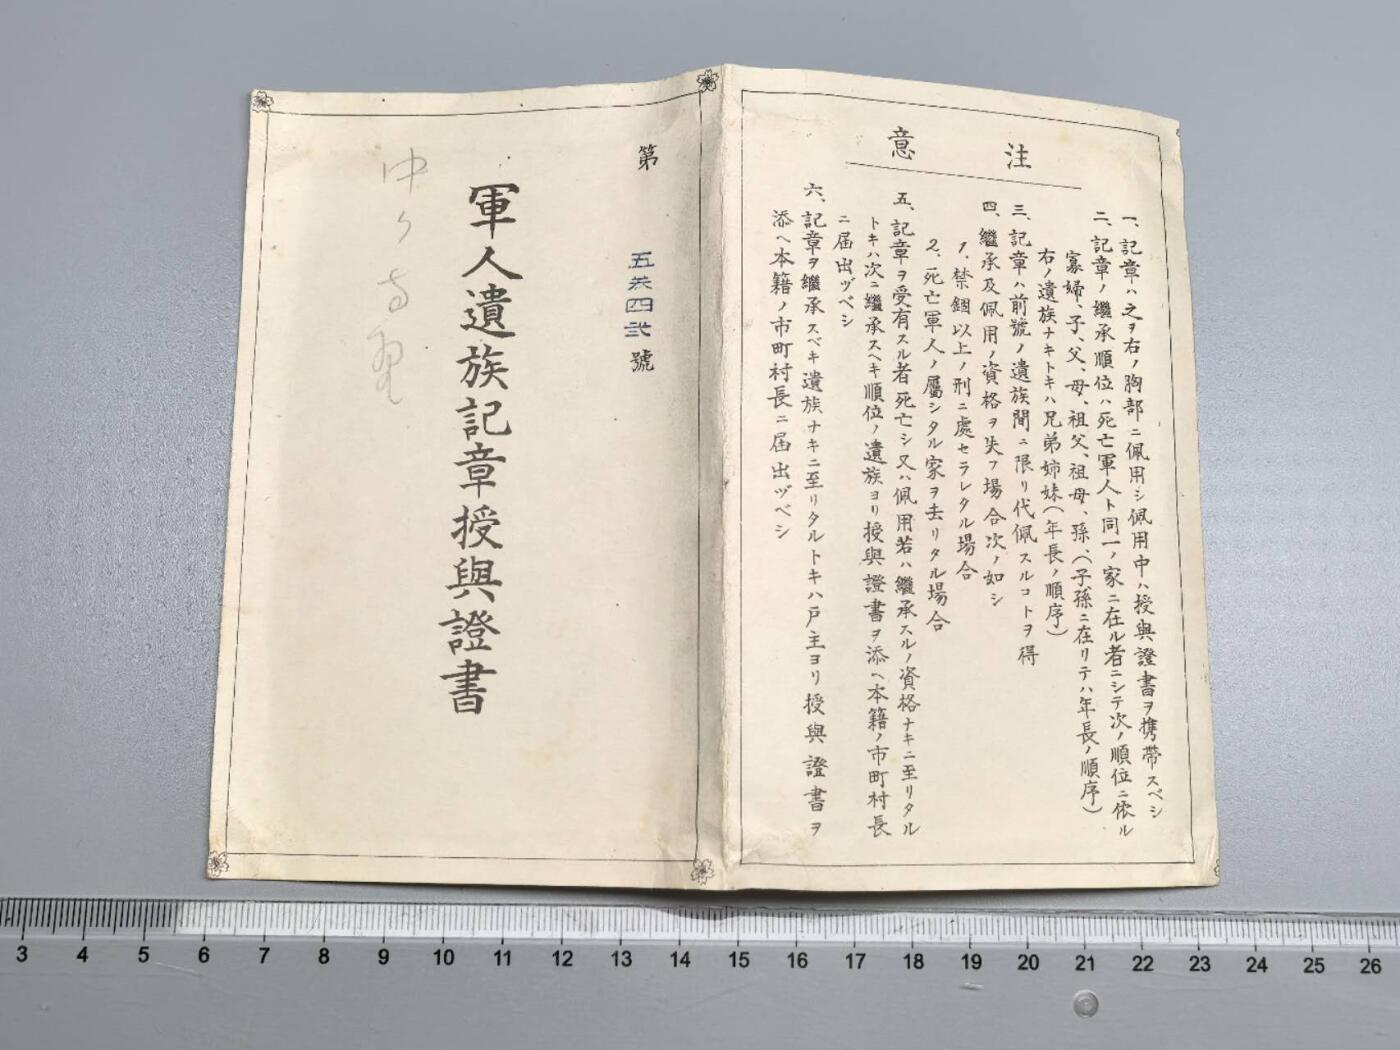 注意
一、記章ハ之ヲ右ノ胸部ニ佩用シ佩用中ハ授與證書ヲ携帶スベシ
二、記章ノ繼承順位ハ死亡軍人ト同一ノ家ニ在ル者ニシテ次ノ順位ニ依ル
寡婦、子、父、母、祖父、祖母、孫、(子孫ニ在リテハ年長ノ順序)
右ノ遺族ナキトキハ兄弟姉妹(年長ノ順序)
三、記章ハ前號ノ遺族間ニ限リ代佩スルコトヲ得
四、繼承及佩用ノ資格ヲ失フ場合次ノ如シ
1、禁錮以上ノ刑ニ處セラレタル場合
2、死亡軍人ノ屬シタル家ヲ去リタル場合
五、記章ヲ受有スル者死亡シ又ハ佩用若ハ繼承スルノ資格ナキニ至リタル
トキハ次ニ繼承スヘキ順位ノ遺族ヨリ授與證書ヲ添ヘ本籍ノ市町村長
ニ届出ヅベシ
六、記章ヲ繼承スベキ遺族ナキニ至リタルトキハ戸主ヨリ授與證書ヲ
添ヘ本籍ノ市町村長ニ届出ヅベシ
第五叁四弐號
軍人遺族記章授與證書
3 4 5 6 7 8 9 10 11 12 13 14 15 16 17 18 19 20 21 22 23 24 25 26